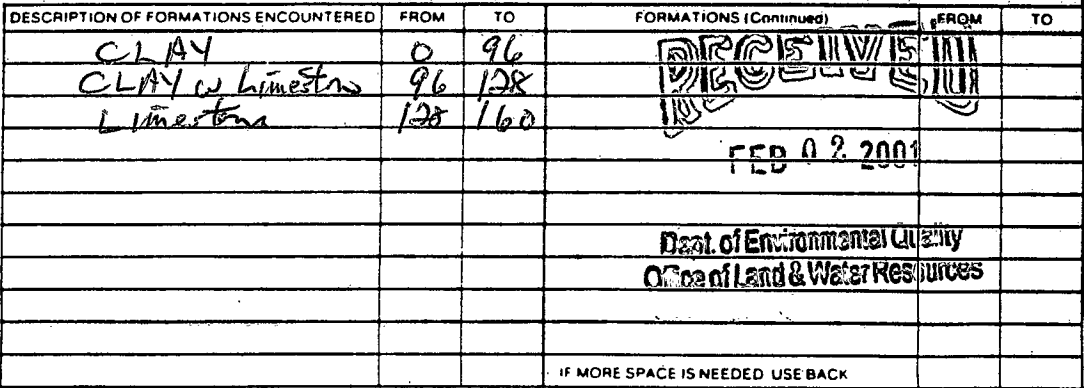 DESCRIPTION OF FORMATIONS ENCOUNTERED FROM TO FORMATIONS (Continued) FROM TO
CLAY 0 96
CLAY w Limestone 96 128
Limestone 128 160
RECEIVED
FEB 02 2001
Dept. of Environmental Quality
Office of Land & Water Resources
IF MORE SPACE IS NEEDED USE BACK